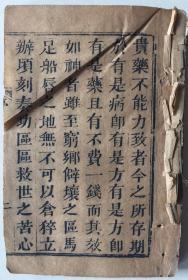 貴藥不能力致者今之所存期
於有是病即有是方有是方即
有是藥且有不費一錢而其效
如神者雖至窮鄉僻壤之區馬
足船唇之地無不可以倉猝立
辦頃刻奏功區區救世之苦心